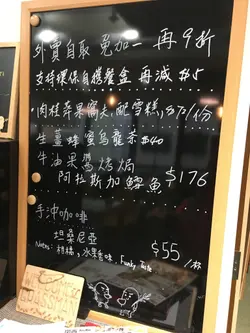 外賣自取 免加一 再9折
支持環保自攜餐盒 再減$5
·肉桂苹果窩夫,配雪糕,$72/份
生薑蜂蜜烏龍茶$40
牛油果醬烤焗
阿拉斯加鱈魚 $176
手沖咖啡
坦桑尼亞
Notes: 柑橘,水果香味, Funky Taste
$55/杯